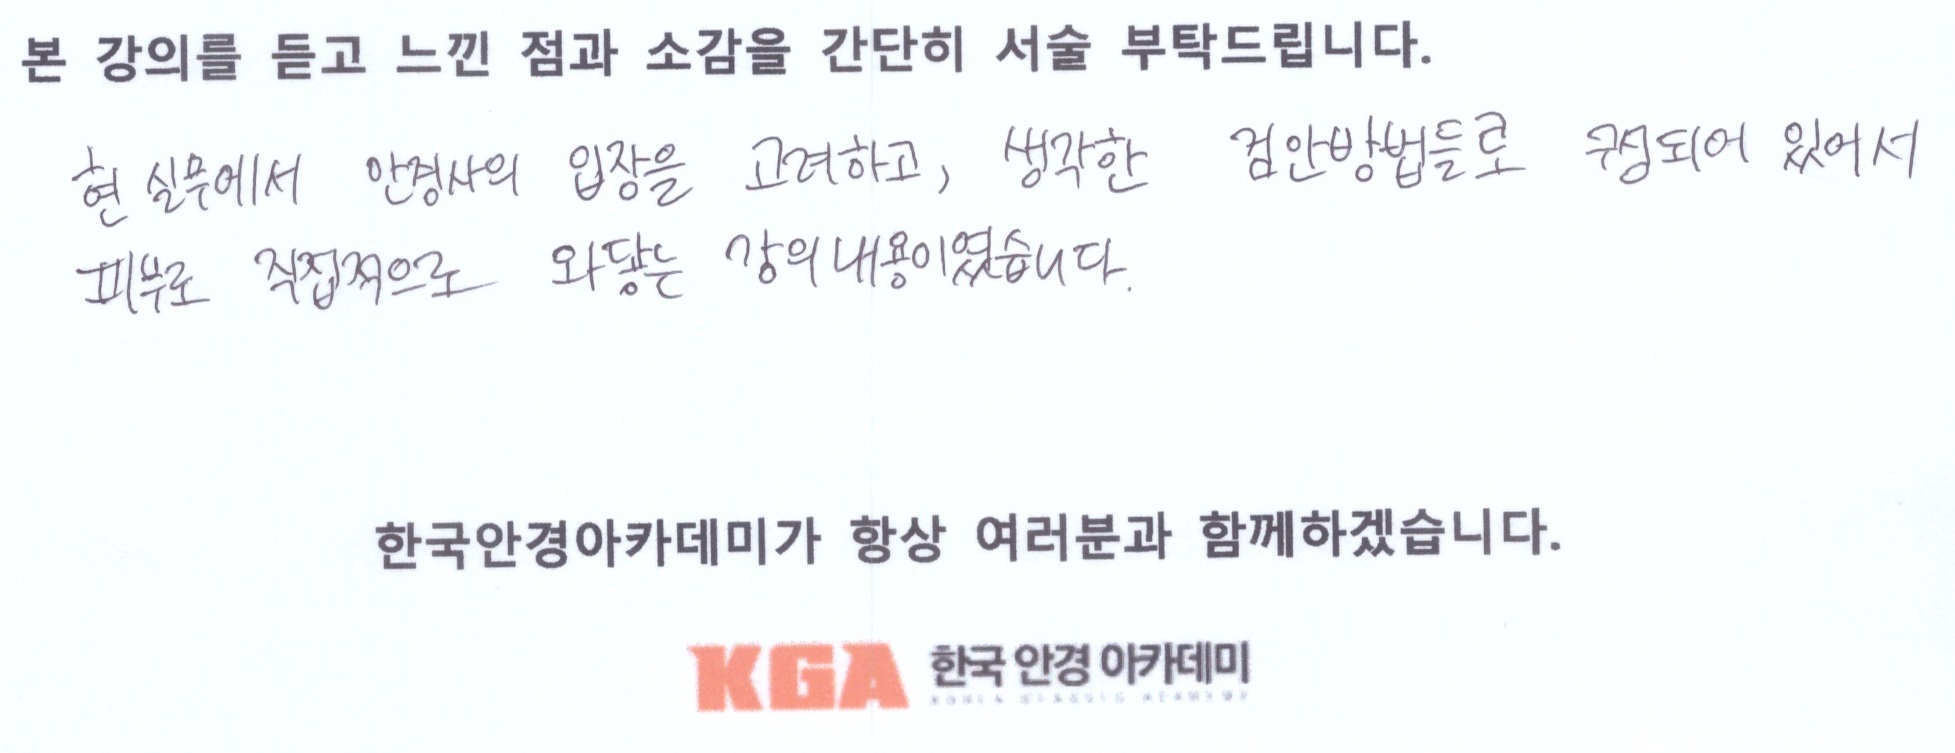 본 강의를 듣고 느낀 점과 소감을 간단히 서술 부탁드립니다.
현 실무에서 안경사의 입장을 고려하고, 생각한 검안방법들로 구성되어 있어서
피부로 직접적으로 와닿는 강의내용이였습니다.
한국안경아카데미가 항상 여러분과 함께하겠습니다.
KGA 한국 안경 아카데미